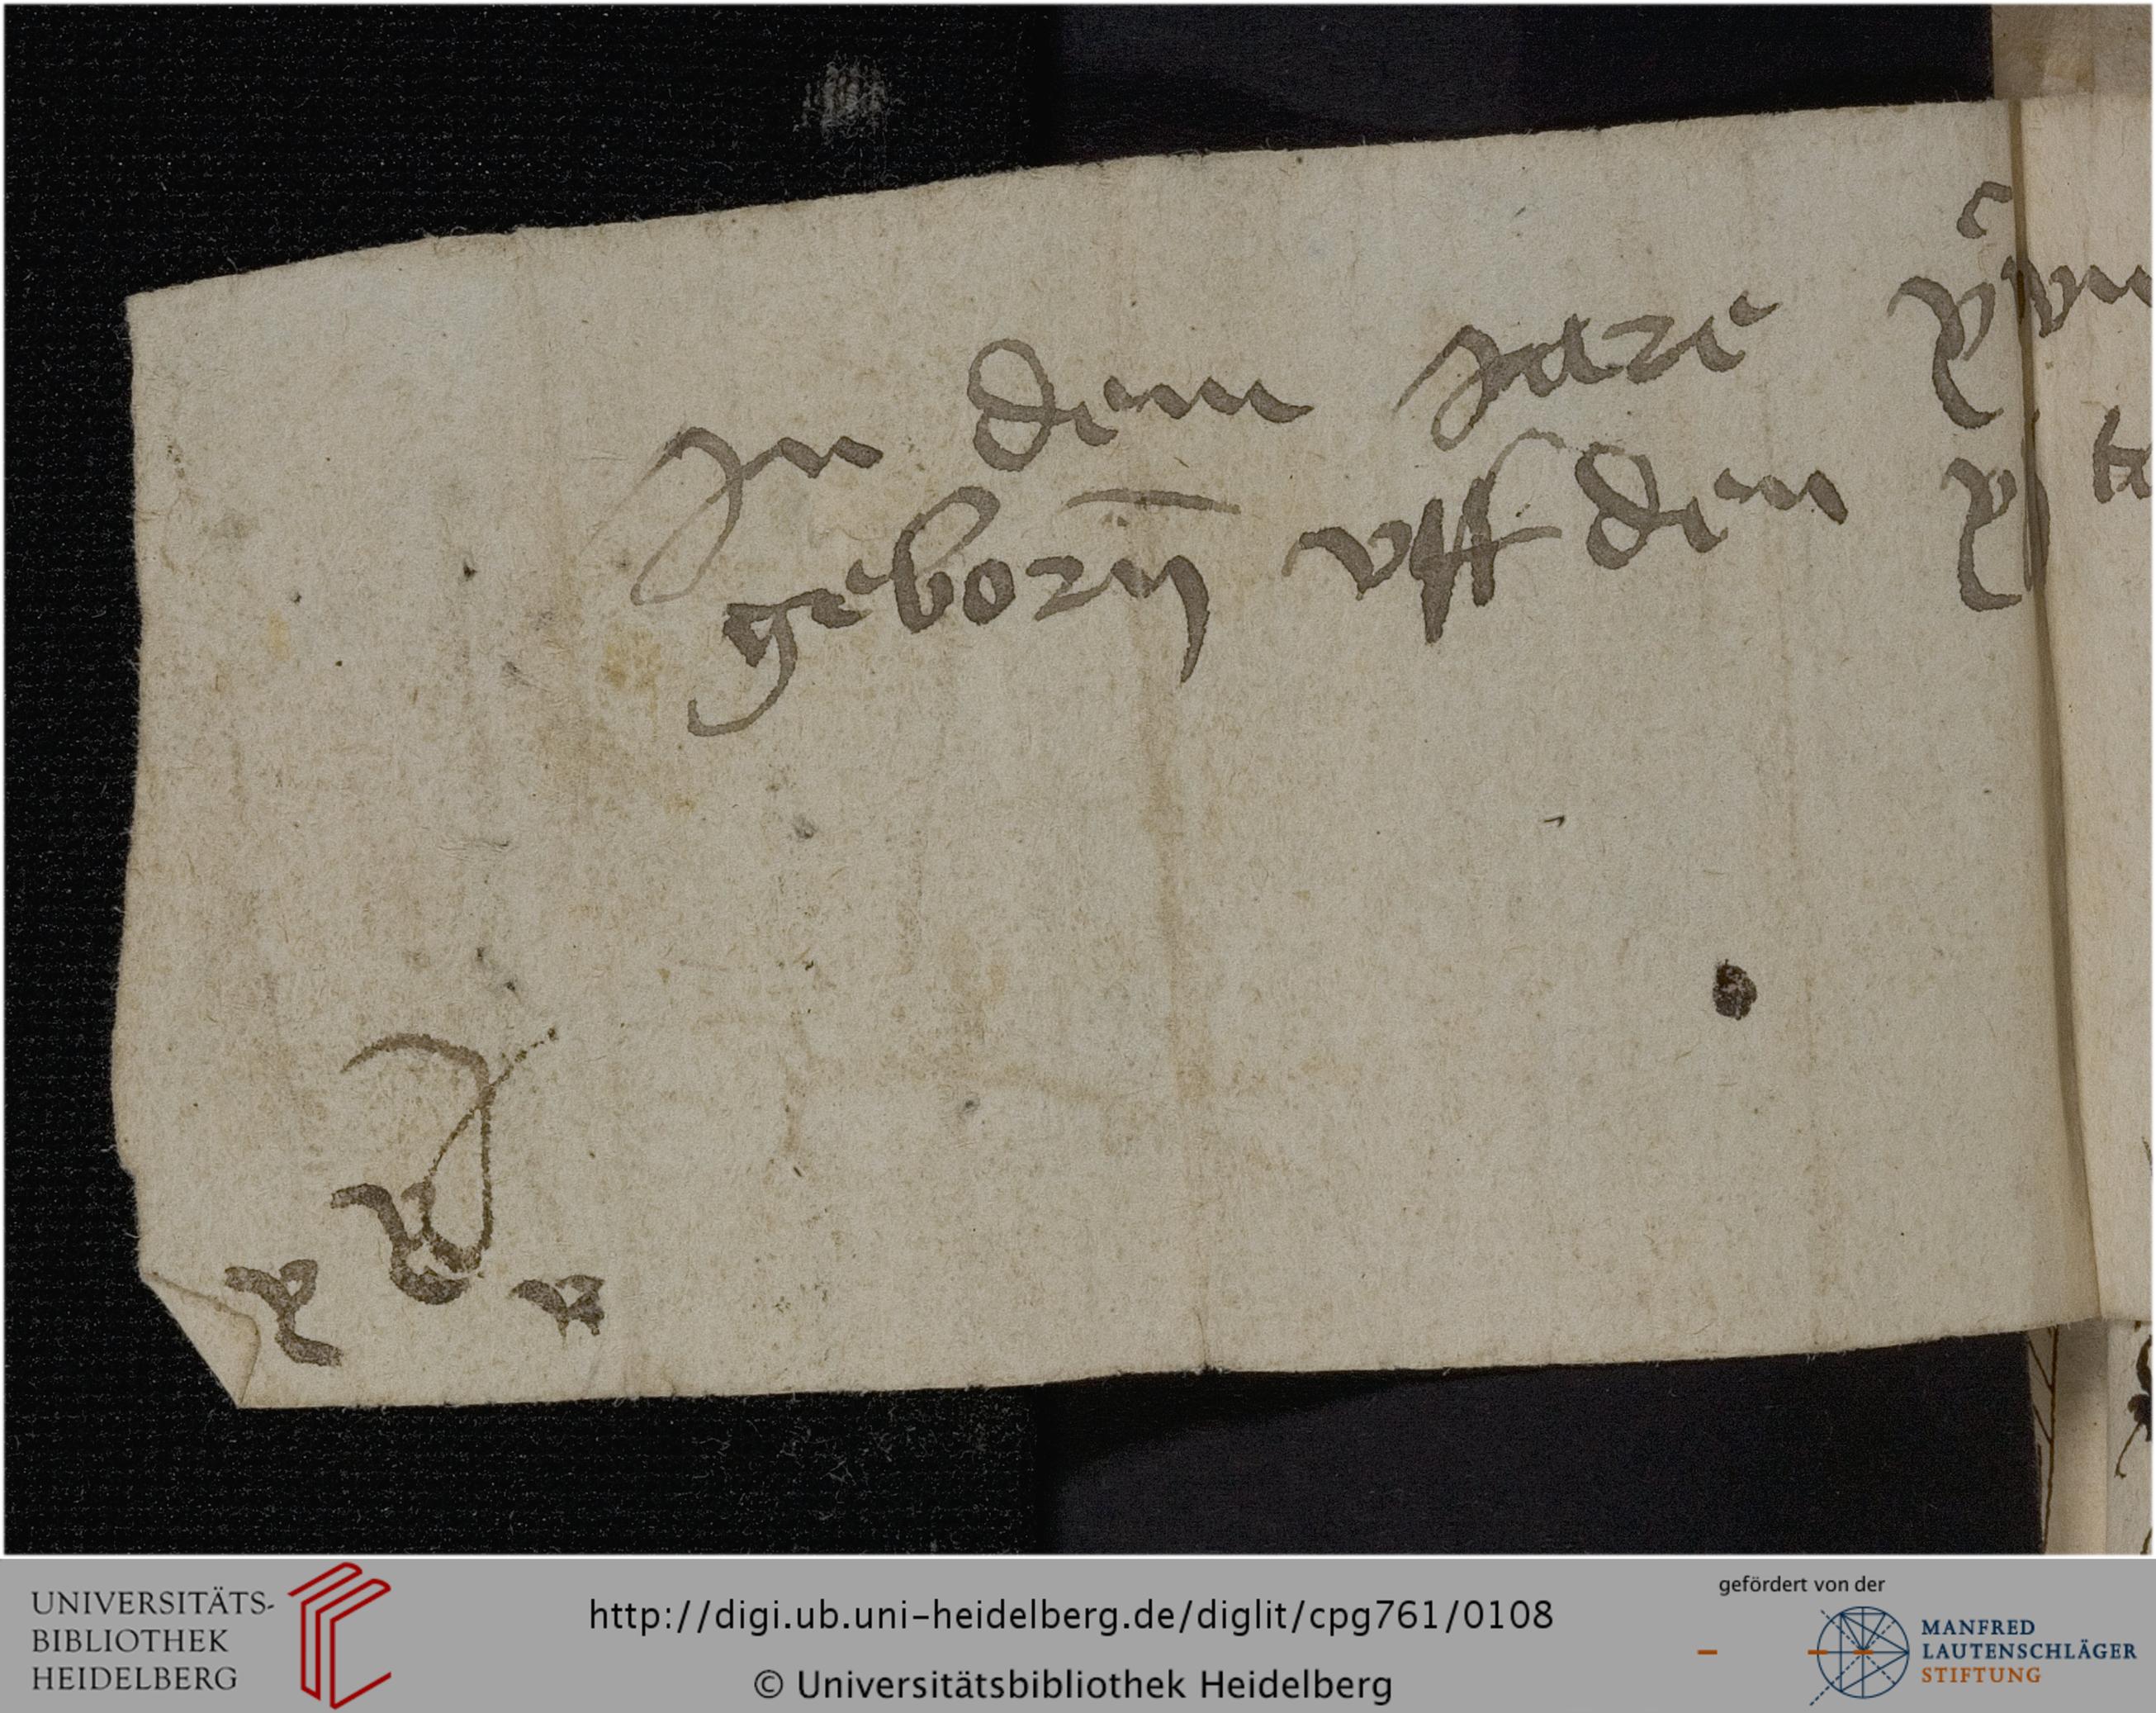 In dem Jare xv
geborn̄ vff den xj
x x v
UNIVERSITÄTS-
BIBLIOTHEK
HEIDELBERG
http://digi.ub.uni-heidelberg.de/diglit/cpg761/0108
© Universitätsbibliothek Heidelberg
gefördert von der
MANFRED
LAUTENSCHLÄGER
STIFTUNG